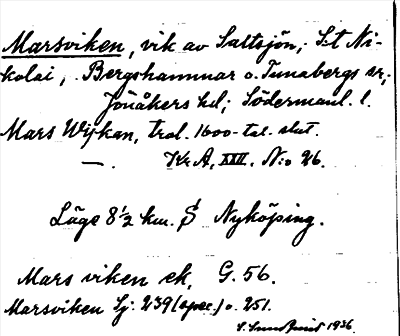 Marsviken, vik av Saltsjön; S:t Ni-
kolai, Bergshammar o. Tunabergs sr,
Jönåkers hd; Södermanl. l.
Mars Wijkan, trol. 1600-tal. slut.
— . Kr A, XXII. N:o 26.
Läge 8½ km. S Nyköping.
Mars viken ek. G. 56.
Marsviken Sj: 239 (spec.) o. 251.
1936